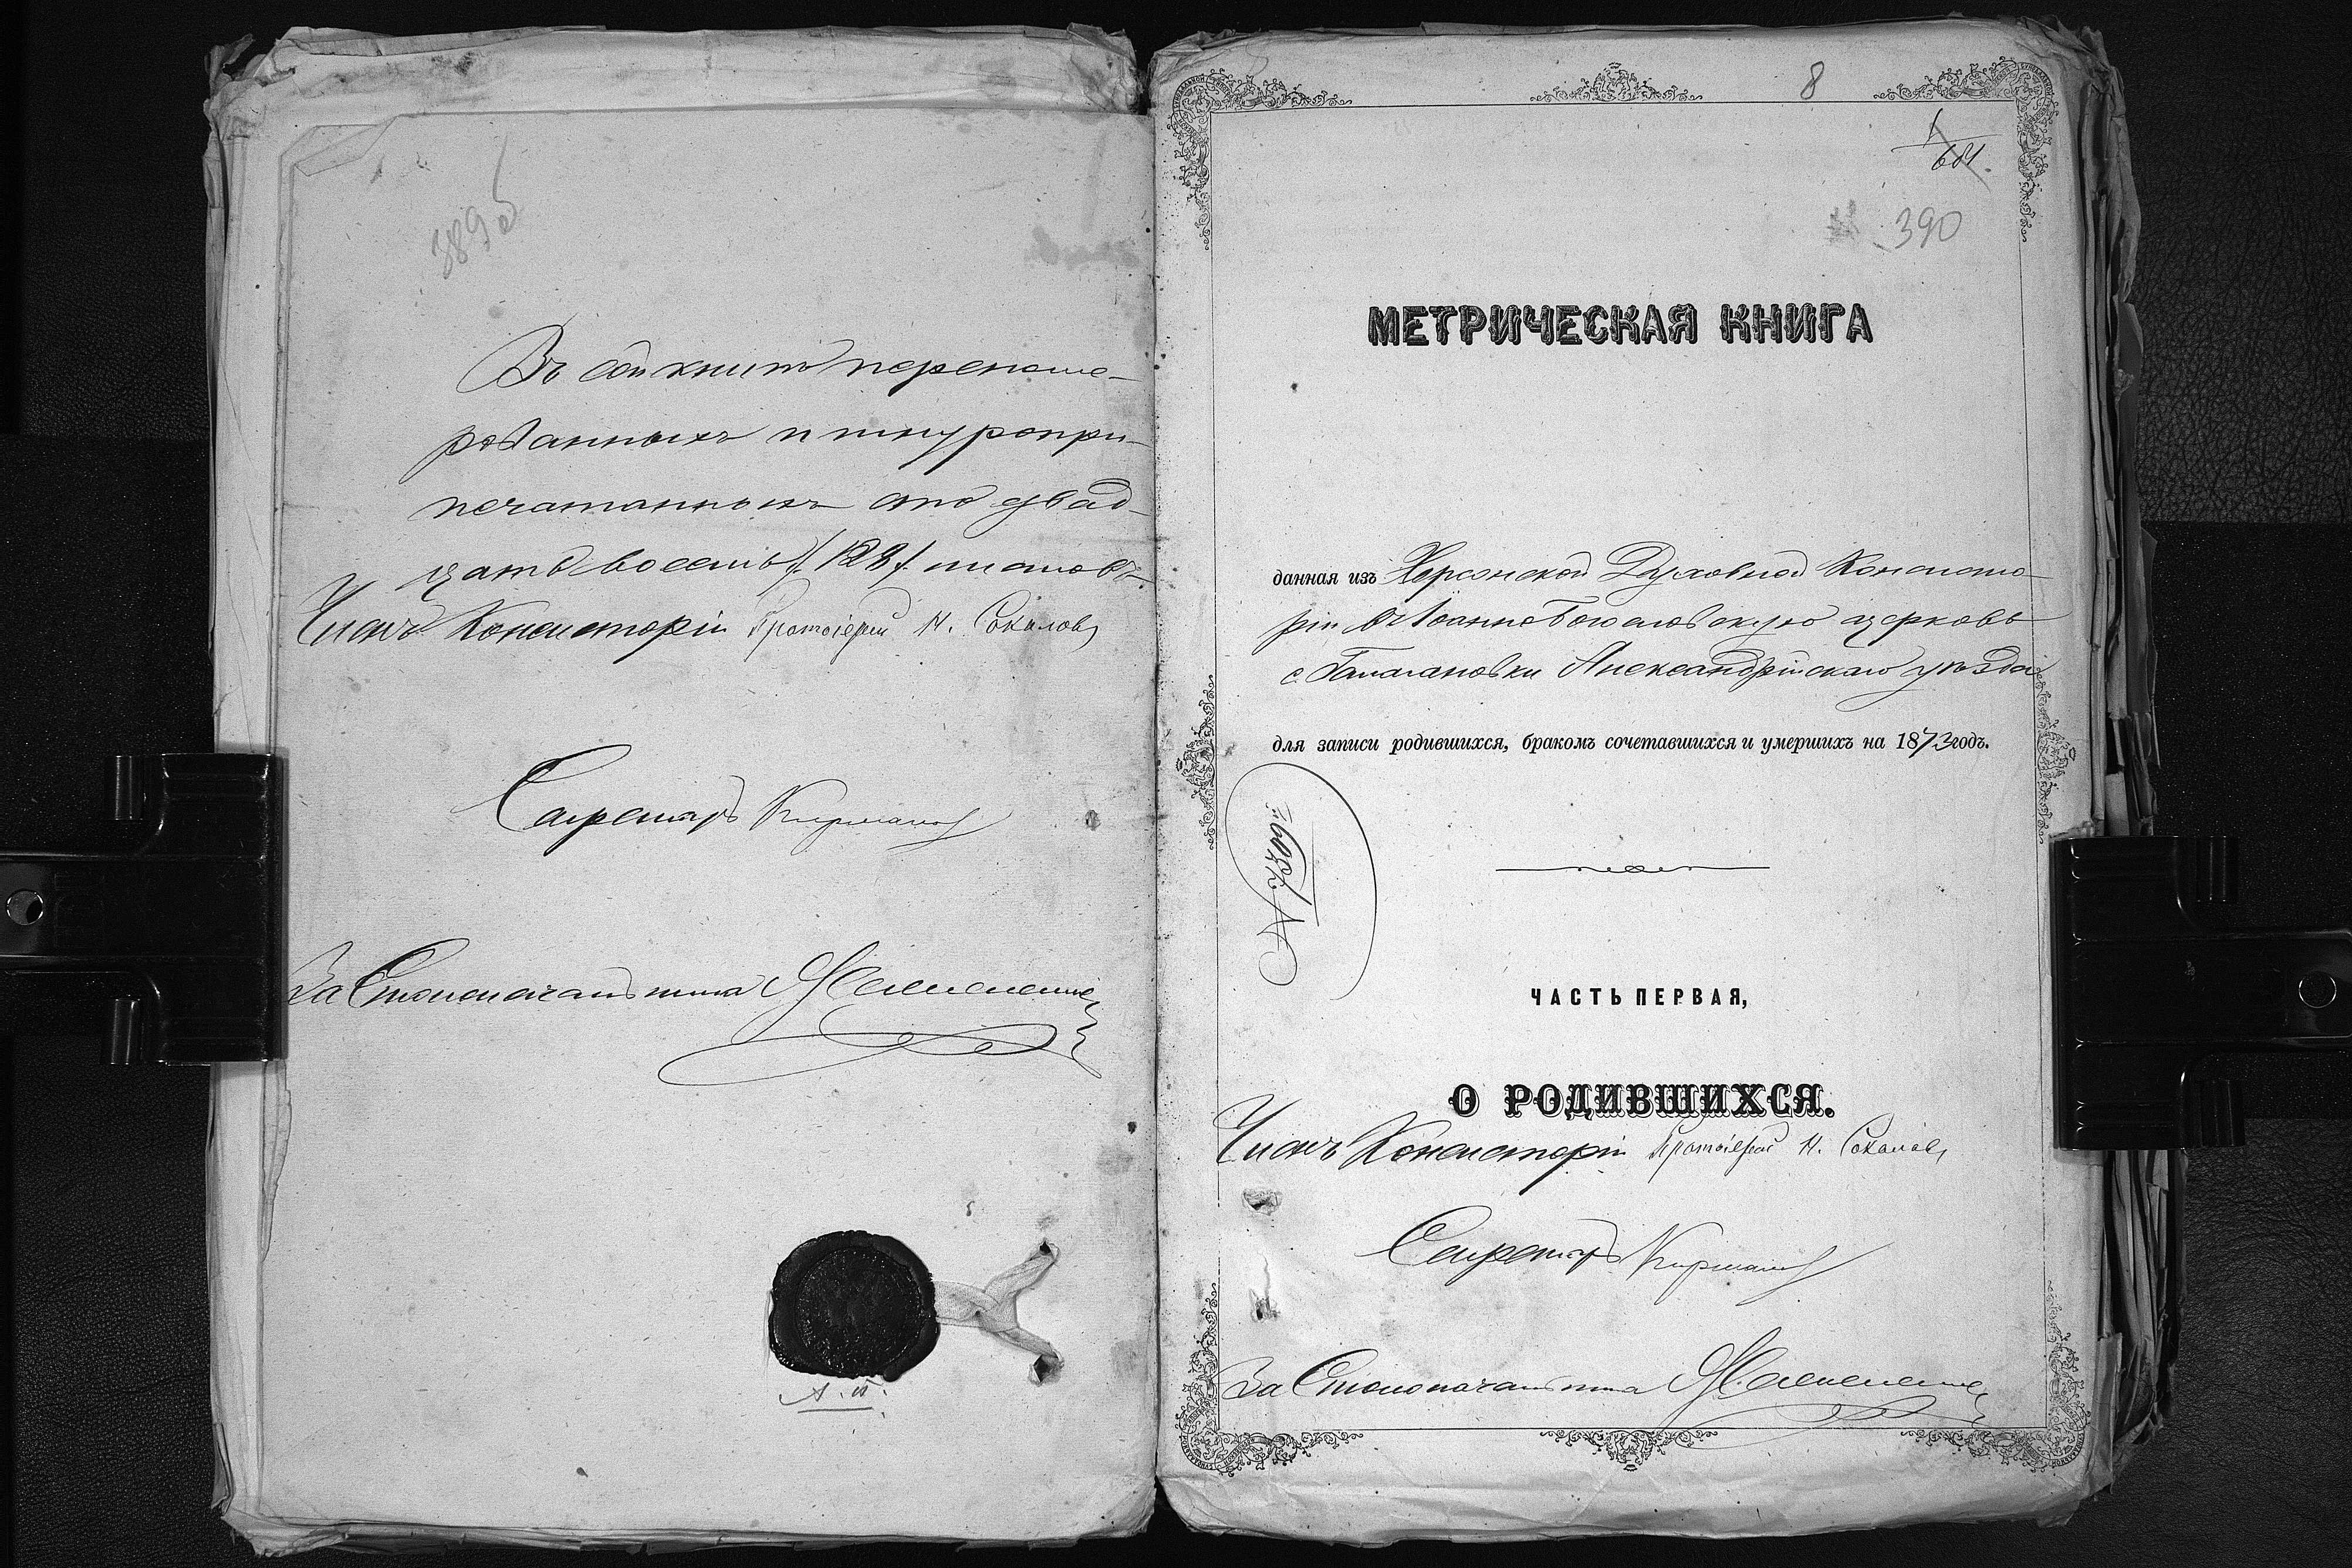 389 об
Въ сей книгѣ перенуме-
рованныхъ и шнуропри-
печатанныхъ сто двад-
цать восемь /128/ листовъ.
Членъ Консисторіи Протоіерей Н. Соколовъ
Секретарь
За Столоначальника
8
1
681.
390
МЕТРИЧЕСКАЯ КНИГА
данная изъ Херсонской Духовной Консисто-
ріи въ Іоанно Богословскую церковь
с. Александрійскаго уѣзда
для записи родившихся, бракомъ сочетавшихся и умершихъ на 1873 годъ.
ЧАСТЬ ПЕРВАЯ,
О РОДИВШИХСЯ.
Членъ Консисторіи Протоіерей Н. Соколовъ
Секретарь
За Столоначальника